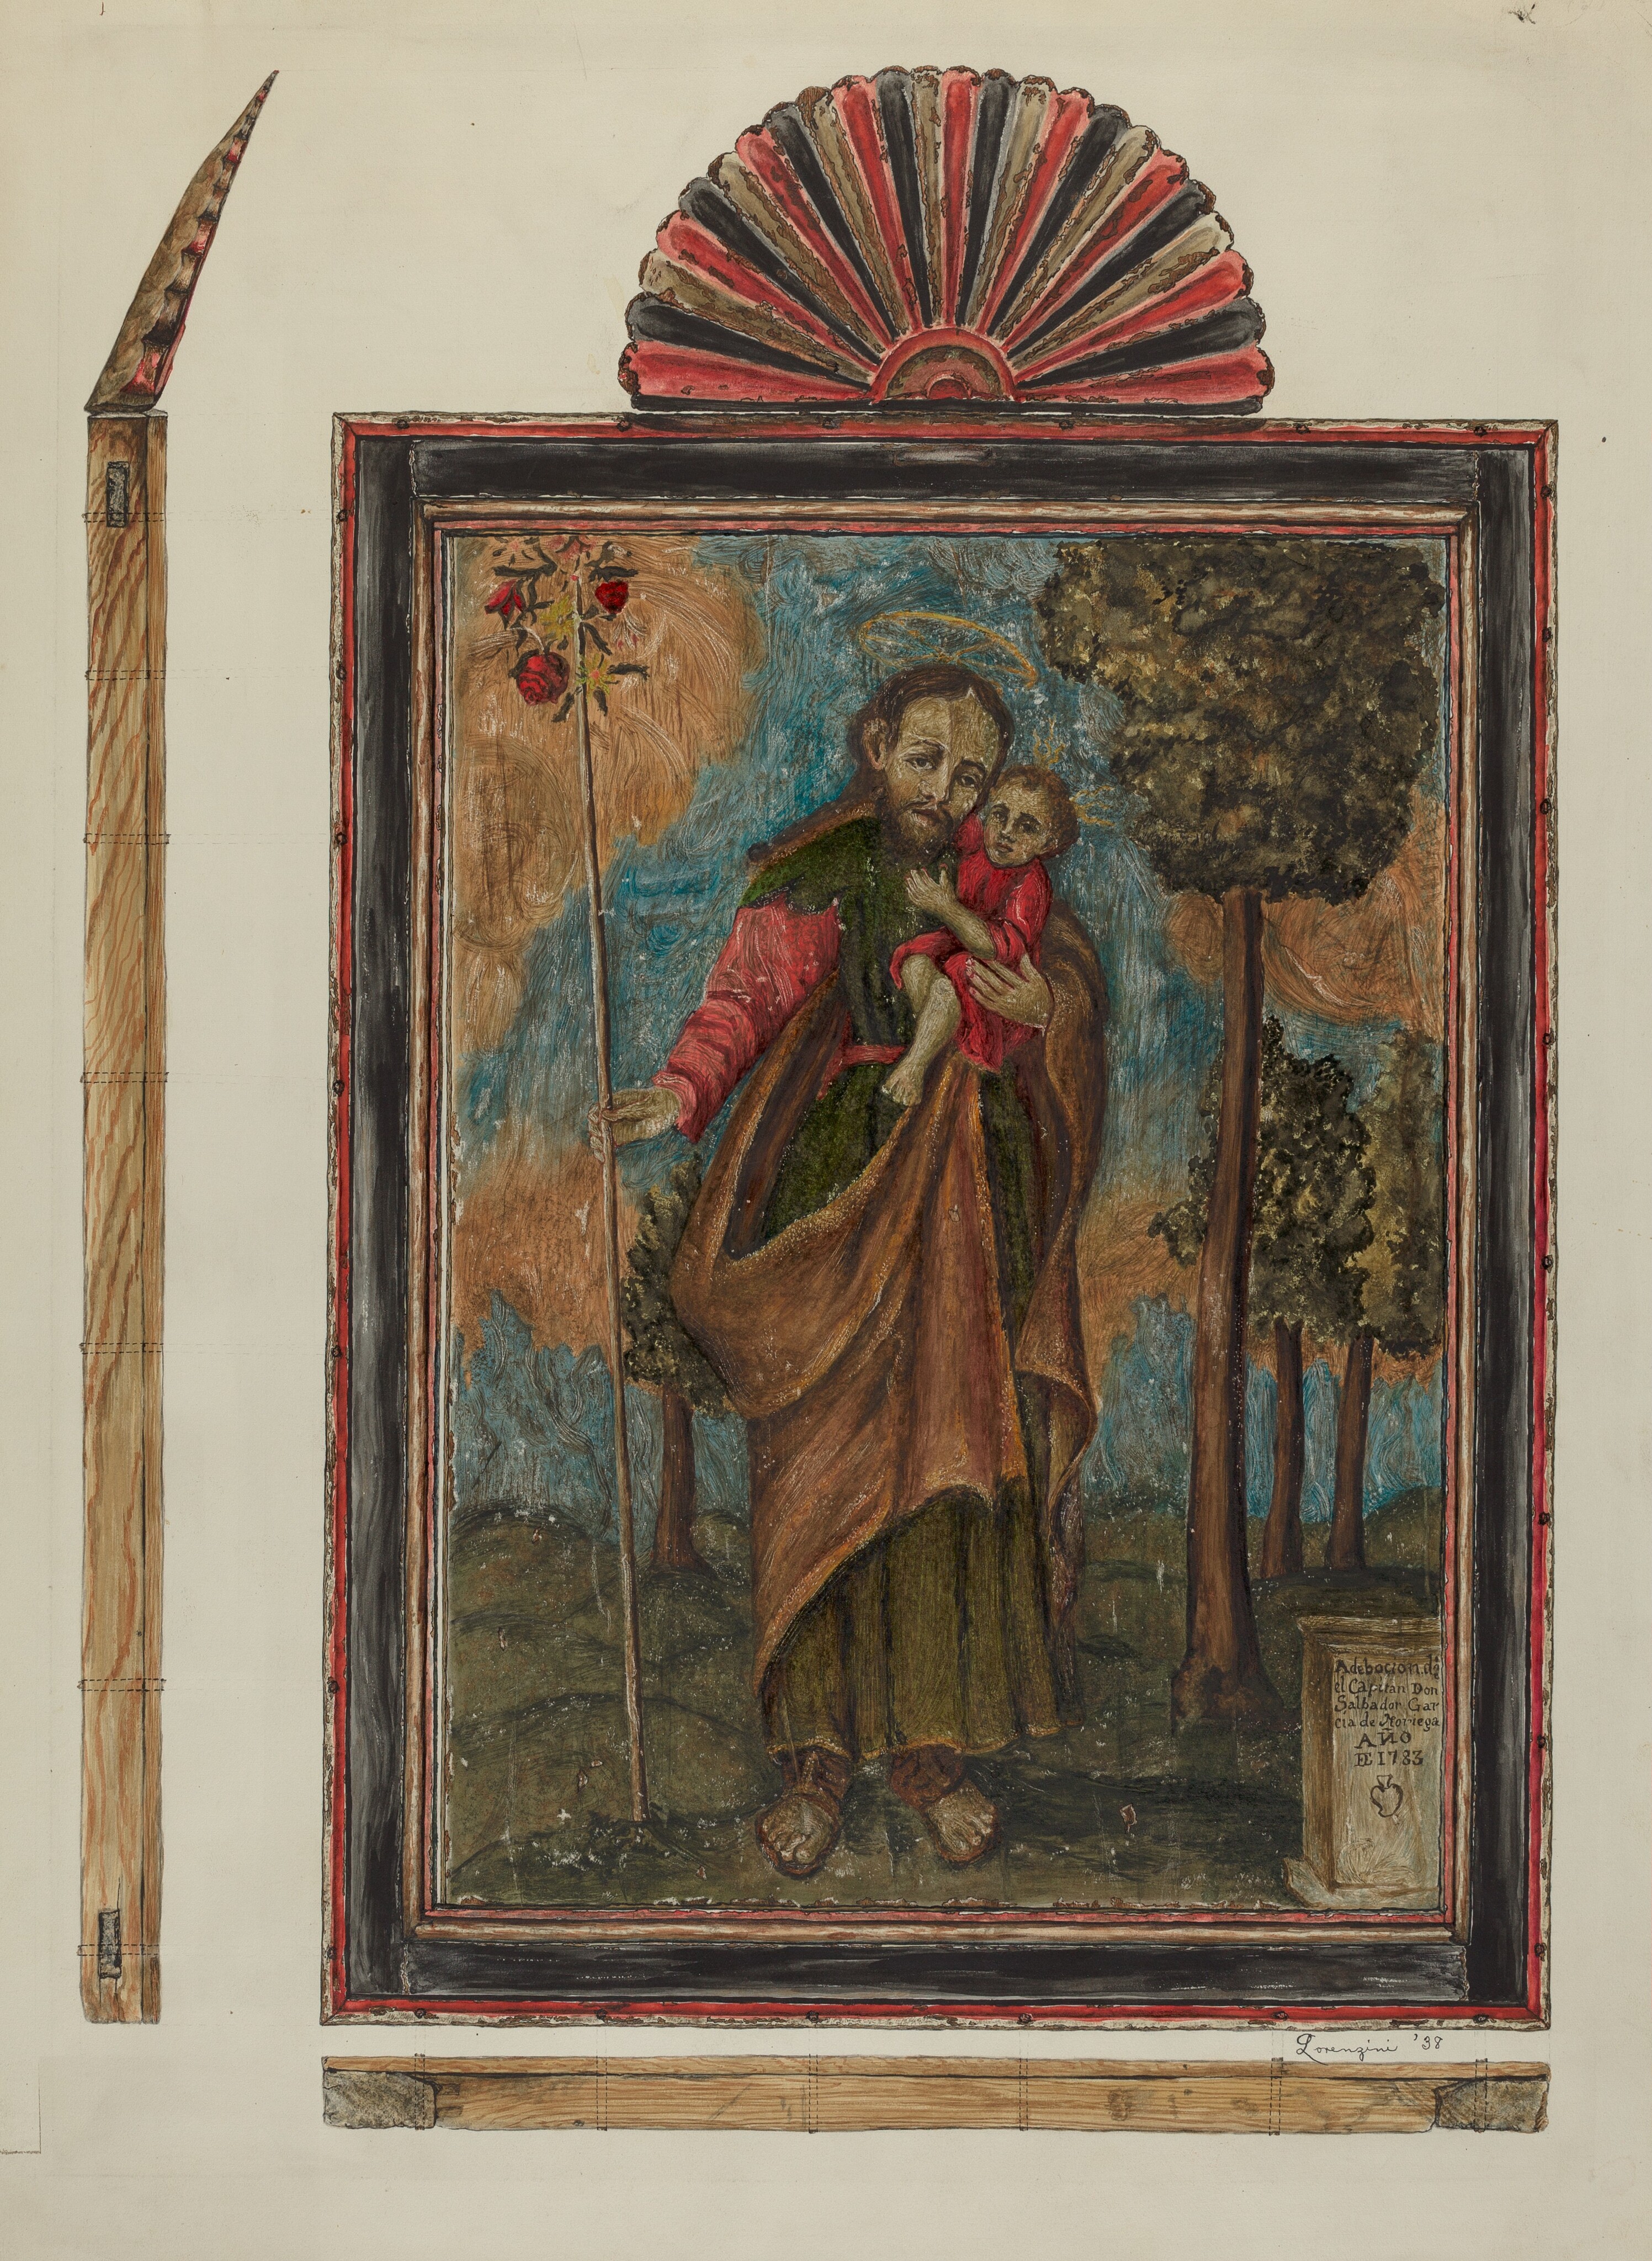 Adebocion. de
el Capitan Don
Salbador Gar
cia de Noriega
AÑO
DE 1783
Lorenzini '38